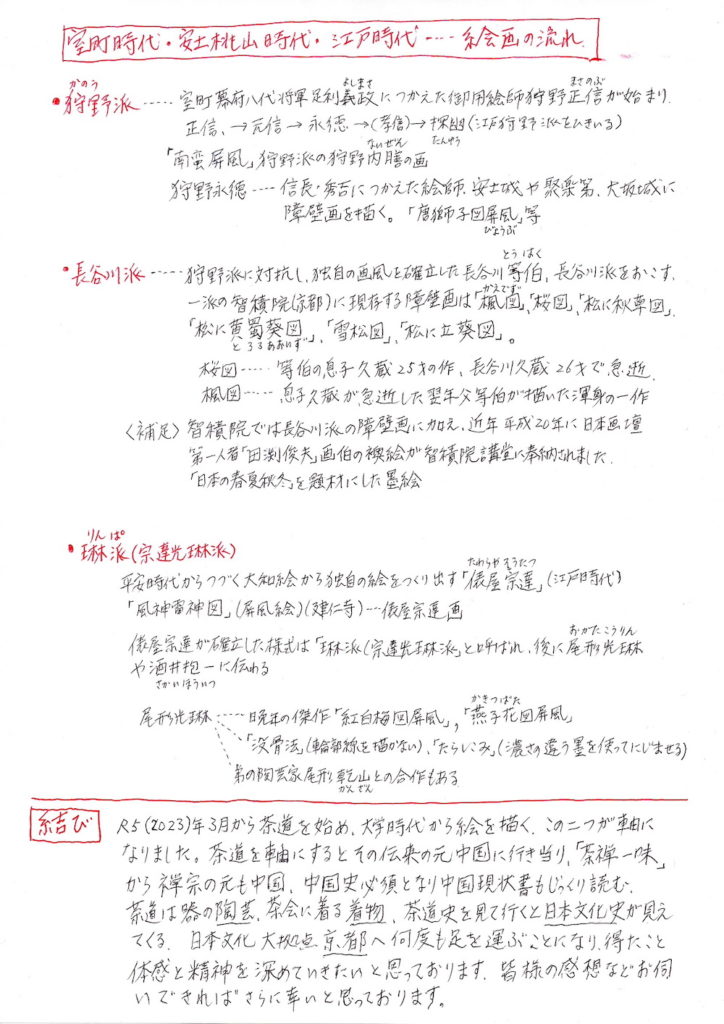 室町時代・安土桃山時代・江戸時代‥‥絵画の流れ
かのう よしまさ まさのぶ
・狩野派‥‥‥室町幕府八代将軍足利義政につかえた御用絵師狩野正信が始まり.
正信、→元信→永徳→(孝信)→探幽(江戸狩野派をひきいる)
ないぜん たんゆう
「南蛮屏風」狩野派の狩野内膳の画
狩野永徳‥‥信長・秀吉につかえた絵師.安土城や聚楽第、大坂城に
障壁画を描く。「唐獅子図屏風」等
びょうぶ
とうはく
・長谷川派‥‥‥狩野派に対抗し、独自の画風を確立した長谷川等伯、長谷川派をおこす.
かえでず
一派の智積院(京都)に現存する障壁画は「楓図」、「桜図」、「松に秋草図」.
「松に黄蜀葵図」、「雪松図」、「松に立葵図」。
とろろあおいず
桜図‥‥‥等伯の息子久蔵25才の作、長谷川久蔵26才で急逝.
楓図‥‥‥息子久蔵が急逝した翌年父等伯が描いた渾身の一作
〈補足〉智積院では長谷川派の障壁画に加え、近年平成20年に日本画壇
第一人者「田渕俊夫」画伯の襖絵が智積院講堂に奉納されました.
「日本の春夏秋冬」を題材にした墨絵
りんぱ
・琳派(宗達光琳派)
たわらやそうたつ
平安時代からつづく大和絵から独自の絵をつくり出す「俵屋宗達」(江戸時代)
「風神雷神図」(屏風絵)(建仁寺)‥‥俵屋宗達画
おがたこうりん
俵屋宗達が確立した様式は「琳派(宗達光琳派」と呼ばれ、後に尾形光琳
や酒井抱一に伝わる
さかいほういつ
かきつばた
尾形光琳‥‥‥晩年の傑作「紅白梅図屏風」,「燕子花図屏風」
「没骨法」(輪郭線を描かない)、「たらしこみ」(濃さの違う墨を使ってにじませる)
弟の陶芸家尾形乾山との合作もある
かんざん
結び
R5(2023)年3月から茶道を始め、大学時代から絵を描く.この二つが軸に
なりました。茶道を軸にするとその伝来の元中国に行き当り、「茶禅一味」
から禅宗の元も中国、中国史必須となり中国現状書もじっくり読む.
茶道は器の陶芸、茶会に着る着物、茶道史を見て行くと日本文化史が見え
てくる.日本文化大拠点京都へ何度も足を運ぶことになり、得たこと
体感と精神を深めていきたいと思っております.皆様の感想などお伺
いできればさらに幸いと思っております。